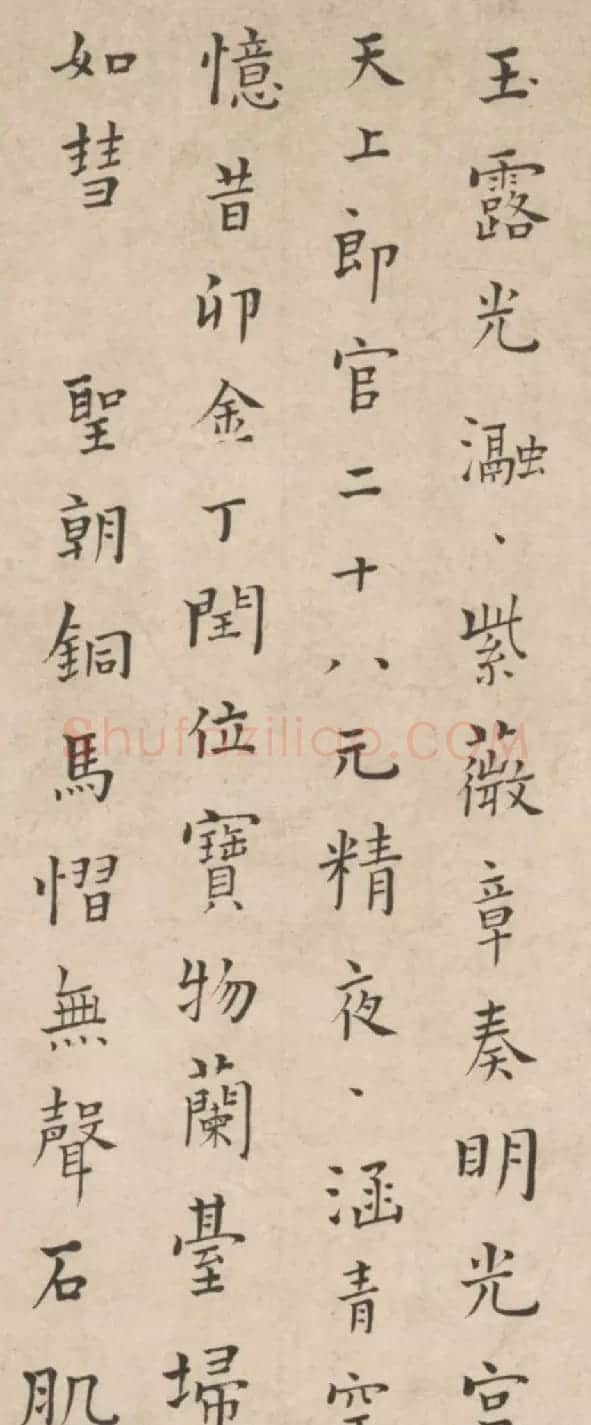 玉露光瀜、紫薇章奏明光宫
天上郎官二十八元精夜、涵青空
憶昔卯金丁閏位寶物蘭臺埽
如彗 聖朝銅馬慴無聲石肌
Shufaziliao.COM